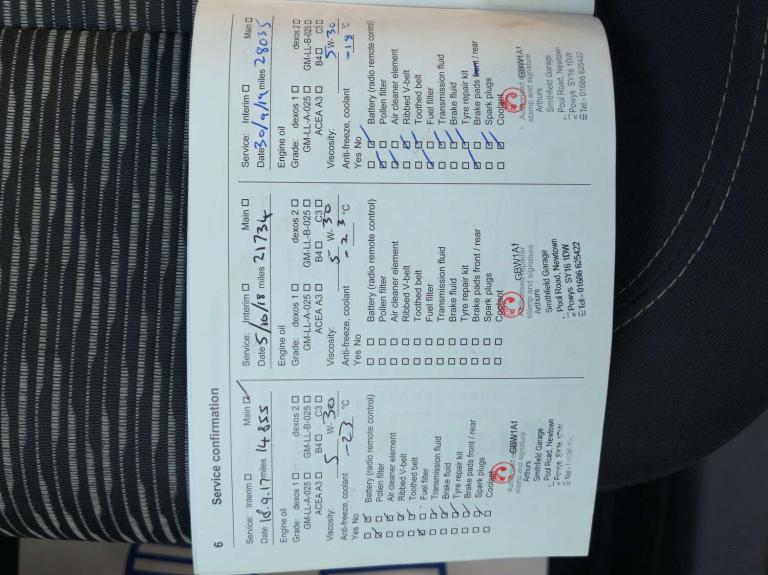 6
Service confirmation
Service: Interim ☐ Main ☑
Date 18.9.17 miles 14855
Engine oil
Grade: dexos 1 ☐ dexos 2 ☐
GM-LL-A-025 ☐ GM-LL-B-025 ☐
ACEA A3 ☐ B4 ☐ C3 ☐
Viscosity: 5 W-30
Anti-freeze, coolant -23 °C
Yes No
Battery (radio remote control)
Pollen filter
Air cleaner element
Ribbed V-belt
Toothed belt
Fuel filter
Transmission fluid
Brake fluid
Tyre repair kit
Brake pads front / rear
Spark plugs
Coolant
GBW1A1
stamp and signature
Arthurs
Smithfield Garage
Pool Road, Newtown
Powys SY16 1DW
Service: Interim Main ☐
Date 5/10/18 miles 21734
Engine oil
Grade: dexos 1 ☐ dexos 2 ☐
GM-LL-A-025 ☐ GM-LL-B-025 ☐
ACEA A3 ☐ B4 ☐ C3 ☐
Viscosity: 5 W-30
Anti-freeze, coolant -23 °C
Yes No
☐ ☐ Battery (radio remote control)
☐ ☐ Pollen filter
☐ ☐ Air cleaner element
☐ ☐ Ribbed V-belt
☐ ☐ Toothed belt
☐ ☐ Fuel filter
☐ ☐ Transmission fluid
☐ ☐ Brake fluid
☐ ☐ Tyre repair kit
☐ ☐ Brake pads front / rear
☐ ☐ Spark plugs
☐ ☐ Coolant
GBW1A1
stamp and signature
Arthurs
Smithfield Garage
Pool Road, Newtown
Powys SY16 1DW
Tel:- 01686 625422
Service: Interim ☐ Main ☐
Date 30/9/19 miles 28035
Engine oil
Grade: dexos 1 ☐ dexos 2 ☐
GM-LL-A-025 ☐ GM-LL-B-025 ☐
ACEA A3 ☐ B4 ☐ C3 ☐
Viscosity: 5 W-30
Anti-freeze, coolant -18 °C
Yes No
Battery (radio remote control)
Pollen filter
Air cleaner element
Ribbed V-belt
Toothed belt
Fuel filter
Transmission fluid
Brake fluid
Tyre repair kit
Brake pads front / rear
Spark plugs
Coolant
GBW1A1
stamp and signature
Arthurs
Smithfield Garage
Pool Road, Newtown
Powys SY16 1DW
Tel:- 01686 625422